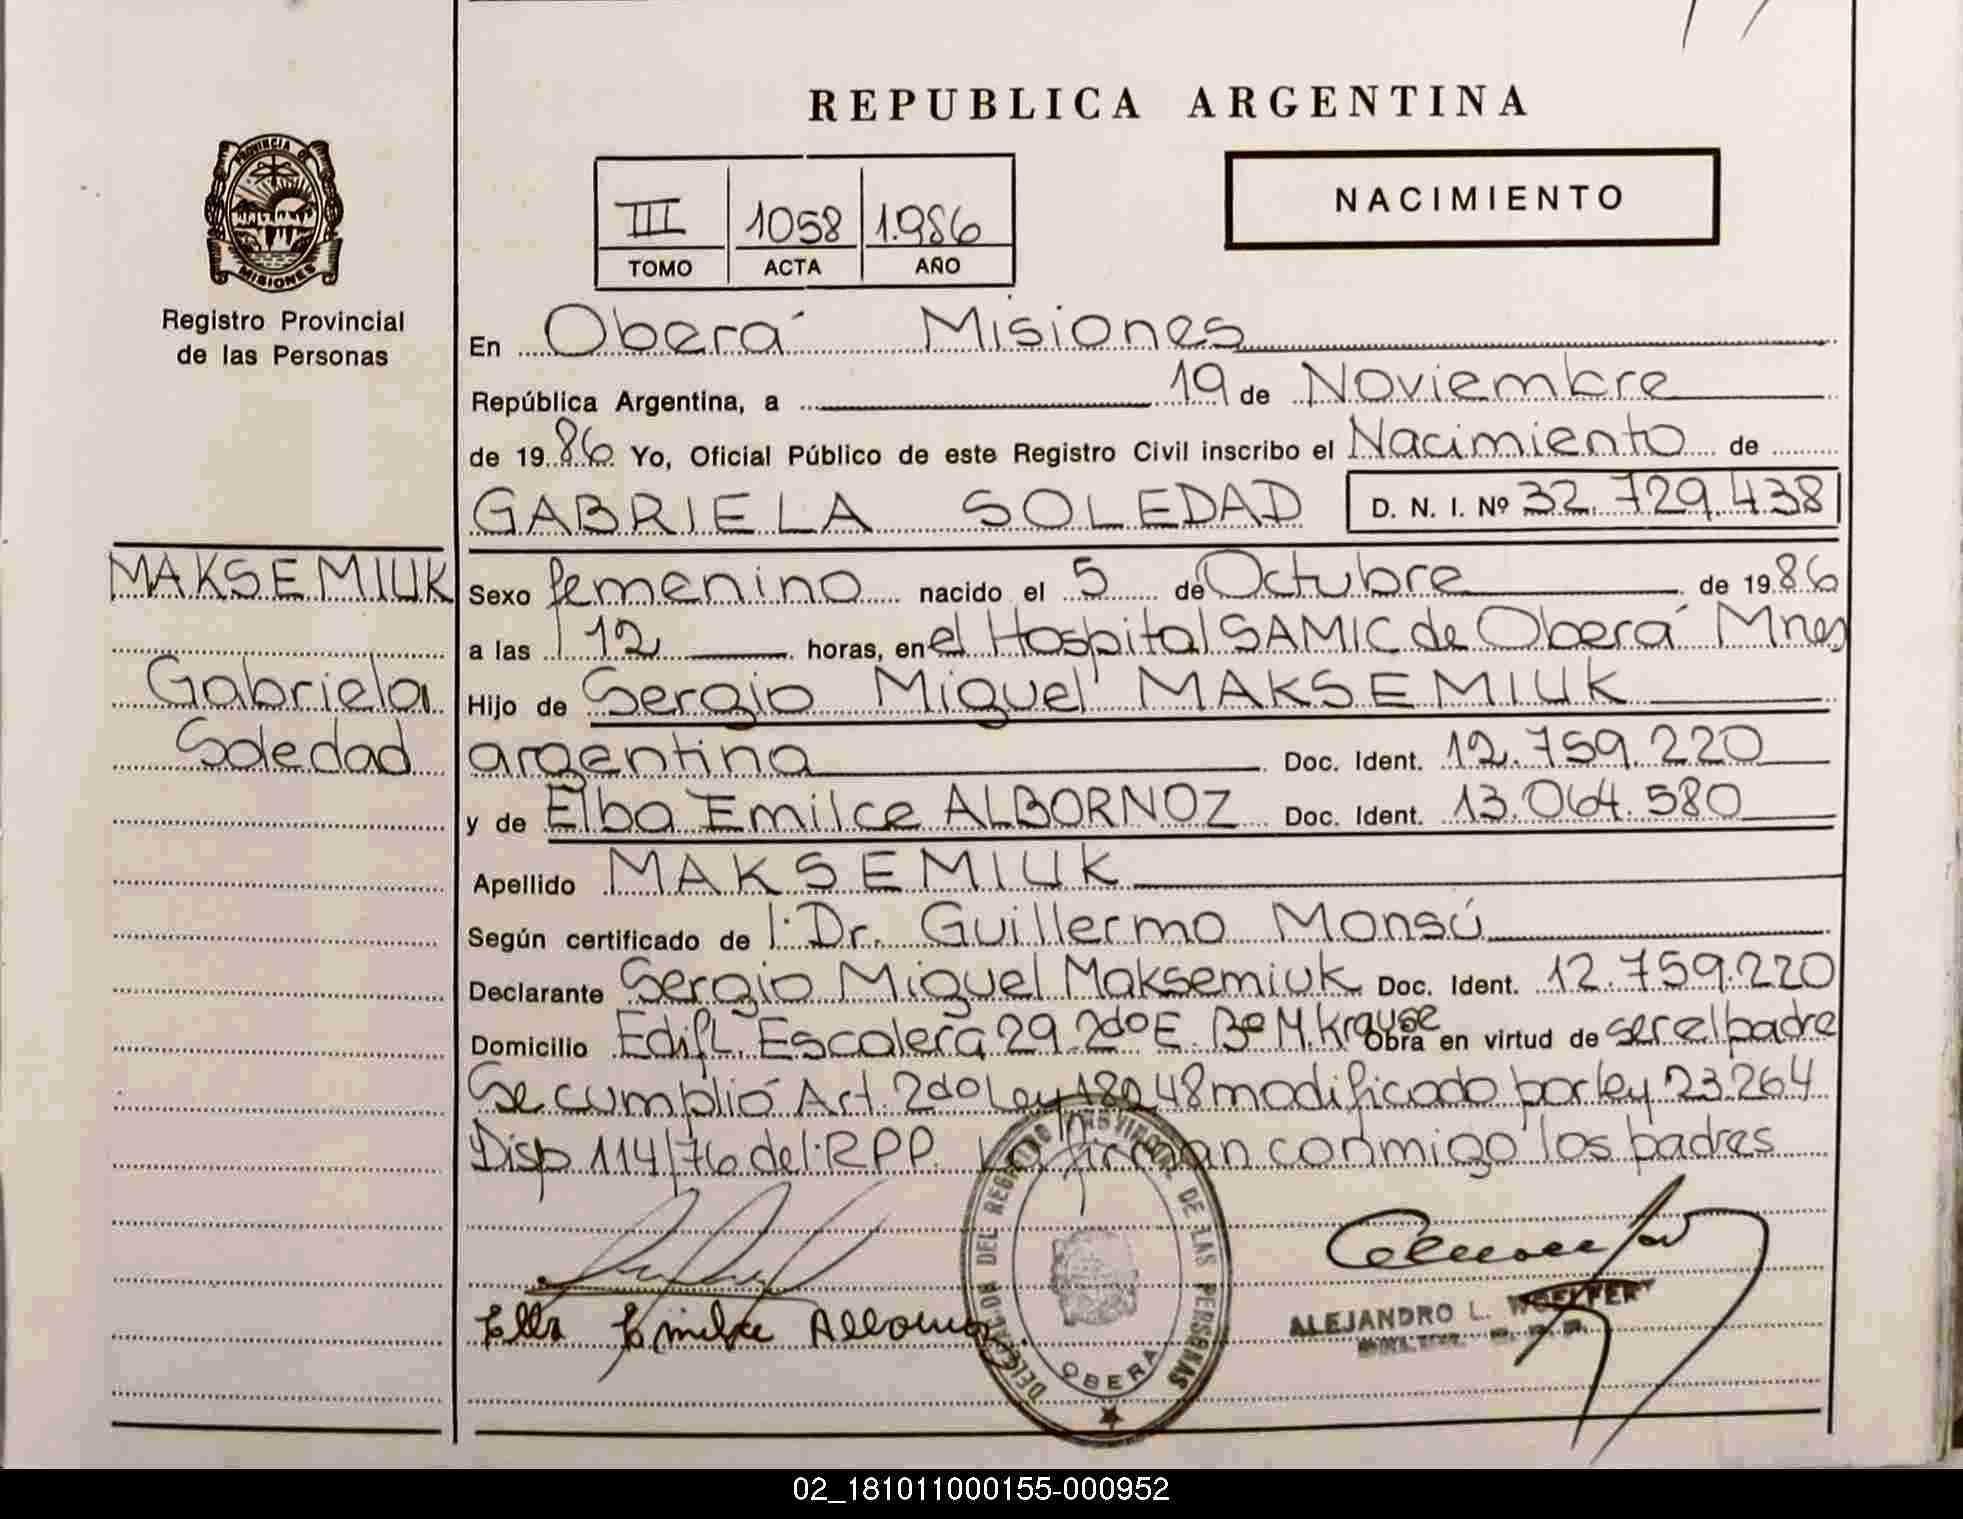 REPUBLICA ARGENTINA
PROVINCIA DE
MISIONES
Registro Provincial
de las Personas
III 1058 1.986
TOMO ACTA AÑO
NACIMIENTO
En Oberá Misiones
República Argentina, a 19 de Noviembre
de 1986 Yo, Oficial Público de este Registro Civil inscribo el Nacimiento de
GABRIELA SOLEDAD D. N. I. Nº 32.729.438
MAKSEMIUK
Gabriela
Soledad
Sexo femenino nacido el 5 de Octubre de 1986
a las 12 horas, en el Hospital SAMIC de Oberá Mnes
Hijo de Sergio Miguel MAKSEMIUK
argentina Doc. Ident. 12.759.220
y de Elba Emilce ALBORNOZ Doc. Ident. 13.064.580
Apellido MAKSEMIUK
Según certificado de l: Dr. Guillermo Monsú
Declarante Sergio Miguel Maksemiuk Doc. Ident. 12.759.220
Domicilio Edif. Escalera 29 2do E. Bº M. Krause Obra en virtud de ser el padre
Se cumplió Art. 2do Ley 18248 modificado por ley 23.264
Disp 114/76 del R.P.P. La firman conmigo los padres
Elba Emilce Albornoz
DEL REGISTRO PROVINCIAL DE LAS PERSONAS
OBERA
ALEJANDRO L.
02_181011000155-000952